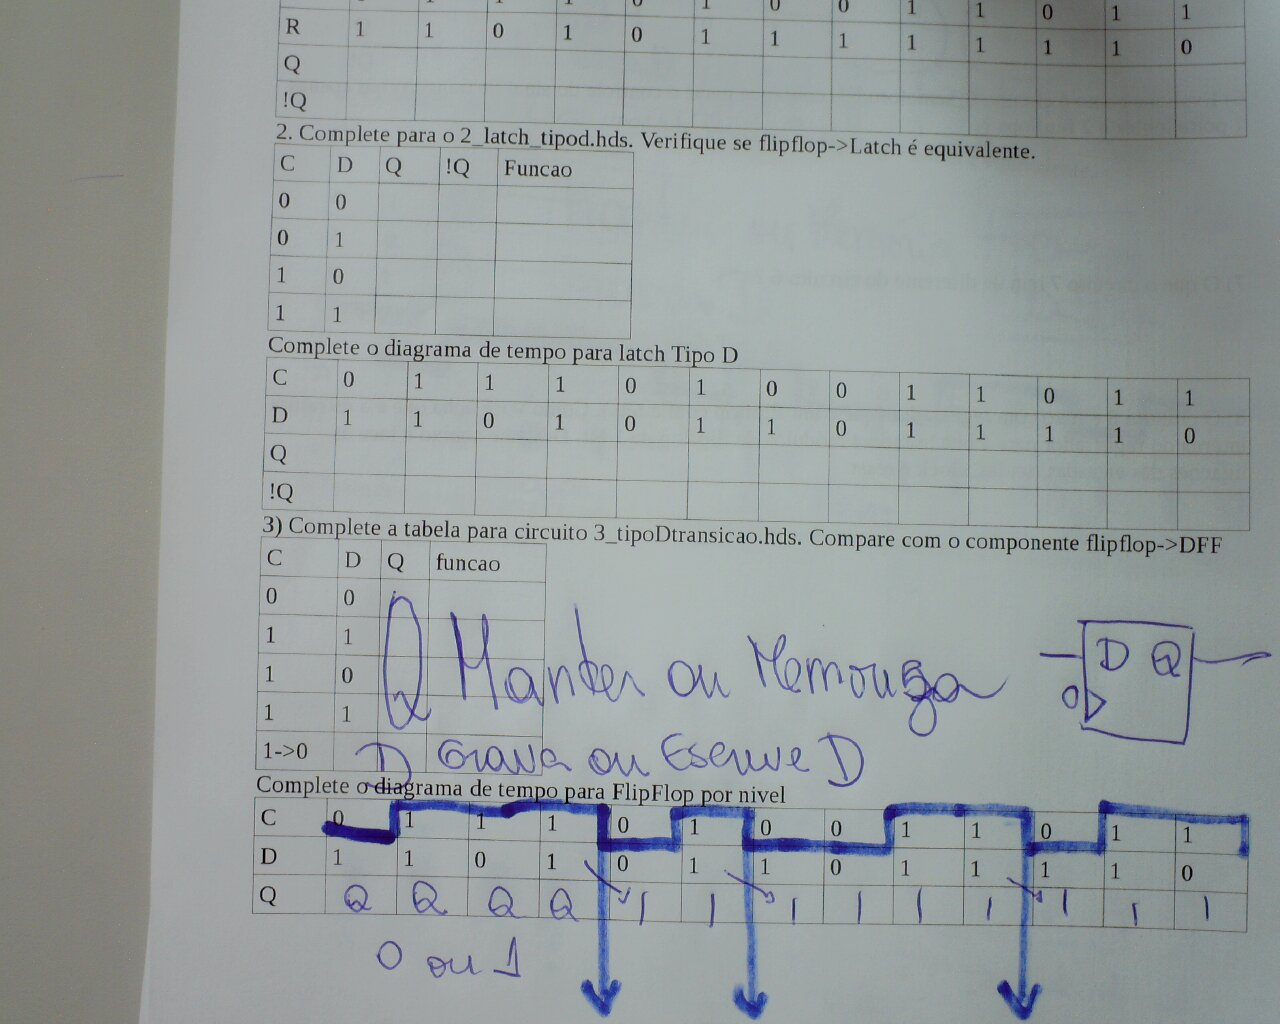 1 1 0 1 0 0 1 1 0 1 1
R 1 1 0 1 0 1 1 1 1 1 1 1 0
Q
!Q
2. Complete para o 2_latch_tipod.hds. Verifique se flipflop->Latch é equivalente.
C D Q !Q Funcao
0 0
0 1
1 0
1 1
Complete o diagrama de tempo para latch Tipo D
C 0 1 1 1 0 1 0 0 1 1 0 1 1
D 1 1 0 1 0 1 1 0 1 1 1 1 0
Q
!Q
3) Complete a tabela para circuito 3_tipoDtransicao.hds. Compare com o componente flipflop->DFF
C D Q funcao
0 0
1 1
1 0
1 1
Q Manter ou Memoriza
D Q
1->0 D Grava ou Escreve D
Complete o diagrama de tempo para FlipFlop por nivel
C 0 1 1 1 0 1 0 0 1 1 0 1 1
D 1 1 0 1 0 1 1 0 1 1 1 1 0
Q Q Q Q Q 1 1 1 1 1 1 1 1 1
0 ou 1